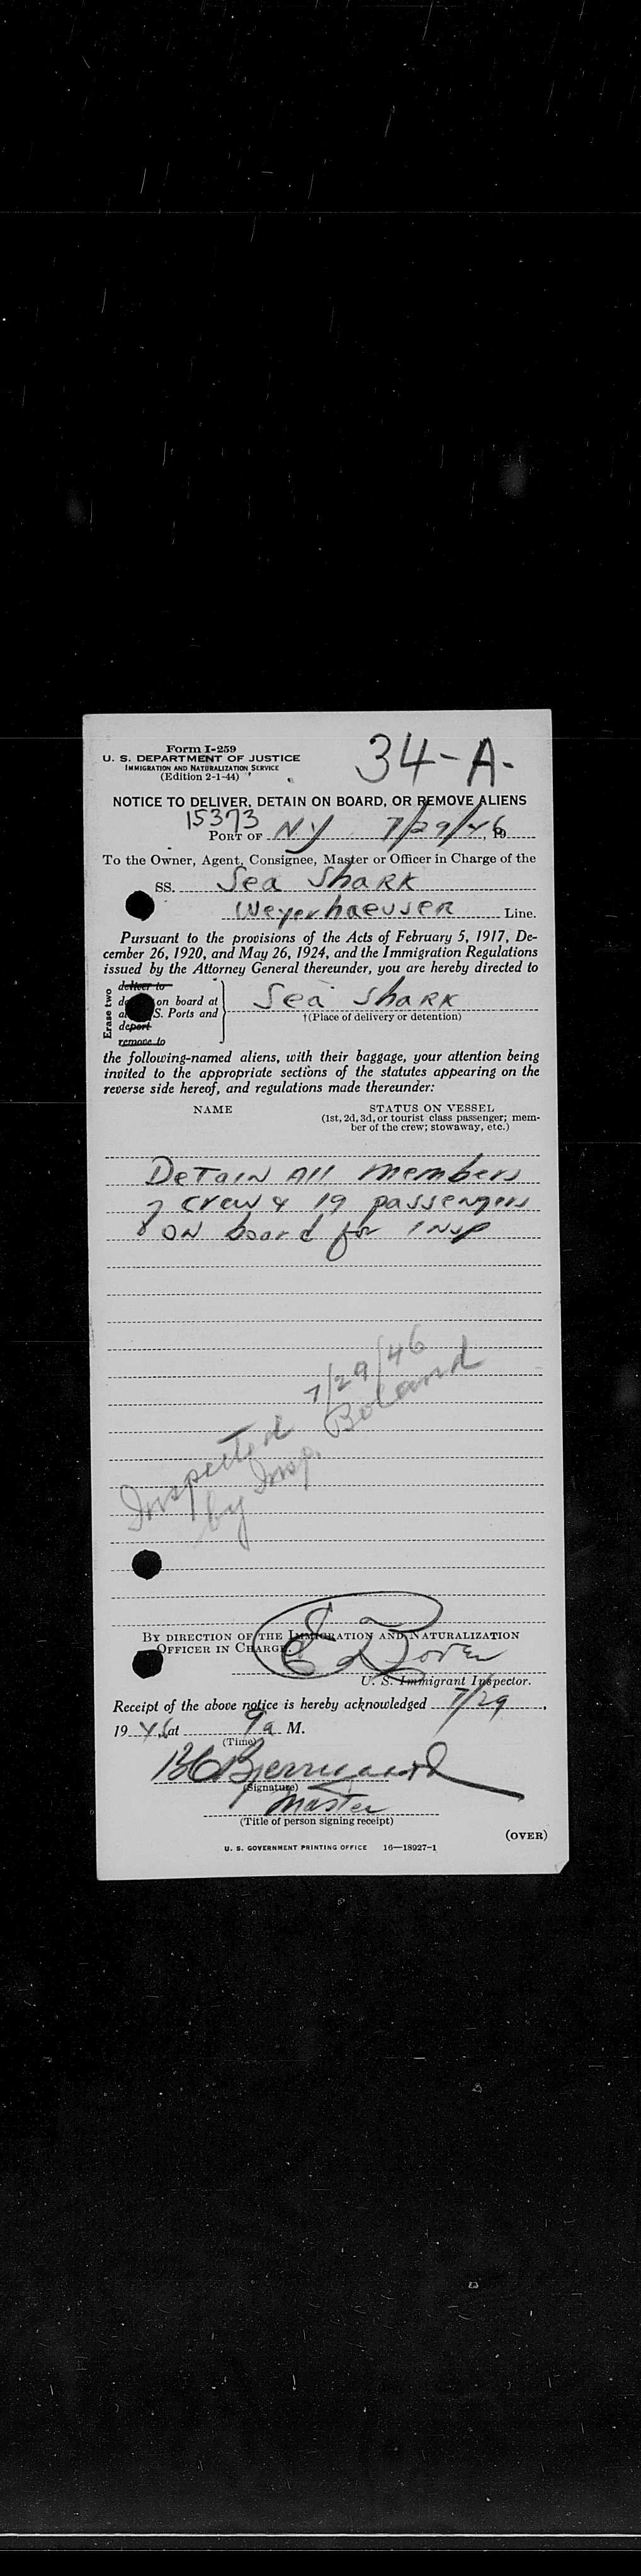 Form I-259
U. S. DEPARTMENT OF JUSTICE
IMMIGRATION AND NATURALIZATION SERVICE
(Edition 2-1-44)
34-A-
NOTICE TO DELIVER, DETAIN ON BOARD, OR REMOVE ALIENS
15373
PORT OF NY 7/29/46, 19
To the Owner, Agent, Consignee, Master or Officer in Charge of the
SS. Sea Shark
Weyerhaeuser Line.
Pursuant to the provisions of the Acts of February 5, 1917, De-
cember 26, 1920, and May 26, 1924, and the Immigration Regulations
issued by the Attorney General thereunder, you are hereby directed to
Erase two
deliver to
on board at
S. Ports and
deport
remove to
Sea Shark
†(Place of delivery or detention)
the following-named aliens, with their baggage, your attention being
invited to the appropriate sections of the statutes appearing on the
reverse side hereof, and regulations made thereunder:
NAME
STATUS ON VESSEL
(1st, 2d, 3d, or tourist class passenger; mem-
ber of the crew; stowaway, etc.)
Detain All members
of crew & 19 passengers
on board for insp
Inspected 7/29/46
by Insp. Boland
BY DIRECTION OF THE IMMIGRATION AND NATURALIZATION
OFFICER IN CHARGE.
U. S. Immigrant Inspector.
Receipt of the above notice is hereby acknowledged 7/29,
19 46 at 9 a M.
(Time)
(Signature)
Master
(Title of person signing receipt)
(OVER)
U. S. GOVERNMENT PRINTING OFFICE 16—18927-1